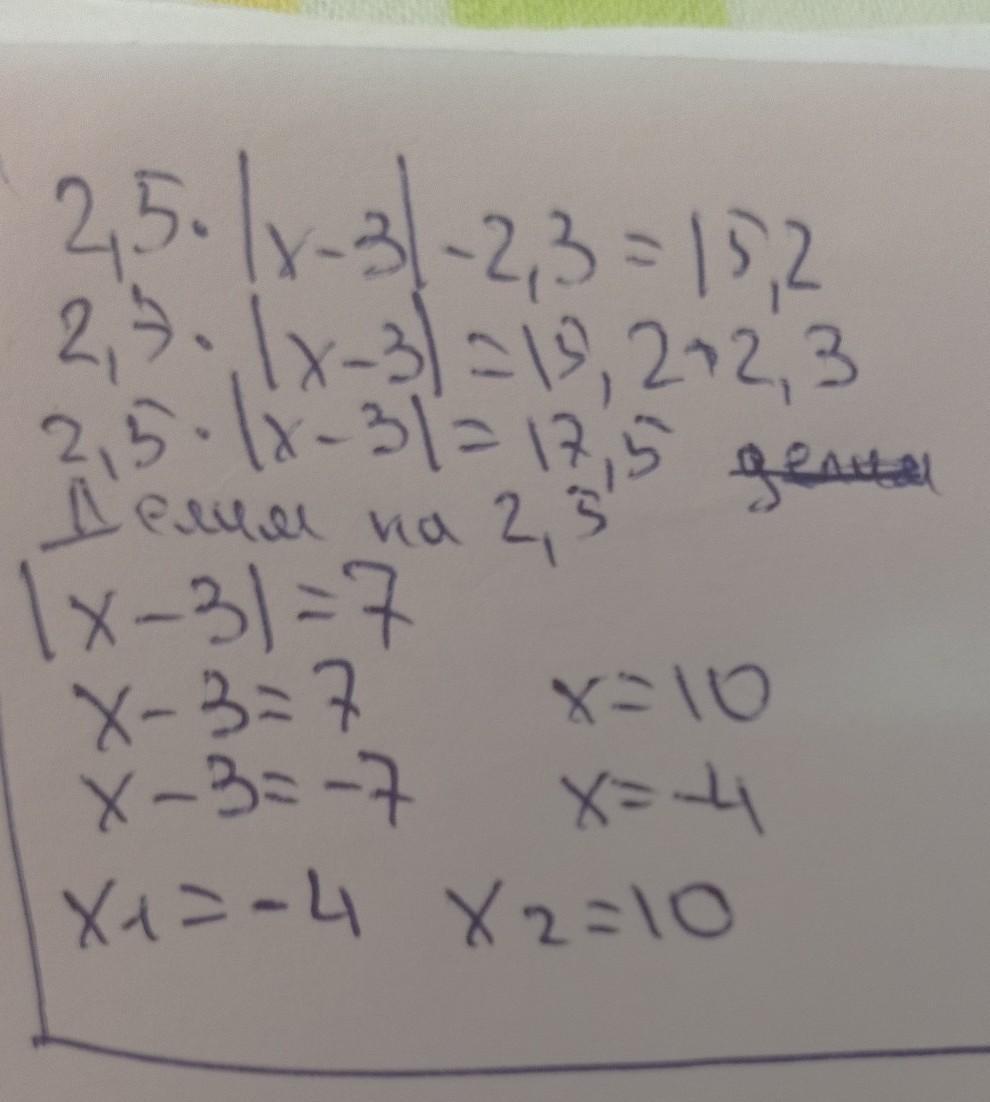 2,5·|x-3|-2,3=15,2
2,5·|x-3|=15,2+2,3
2,5·|x-3|=17,5 делим
Делим на 2,5
|x-3|=7
x-3=7 x=10
x-3=-7 x=-4
x1=-4 x2=10